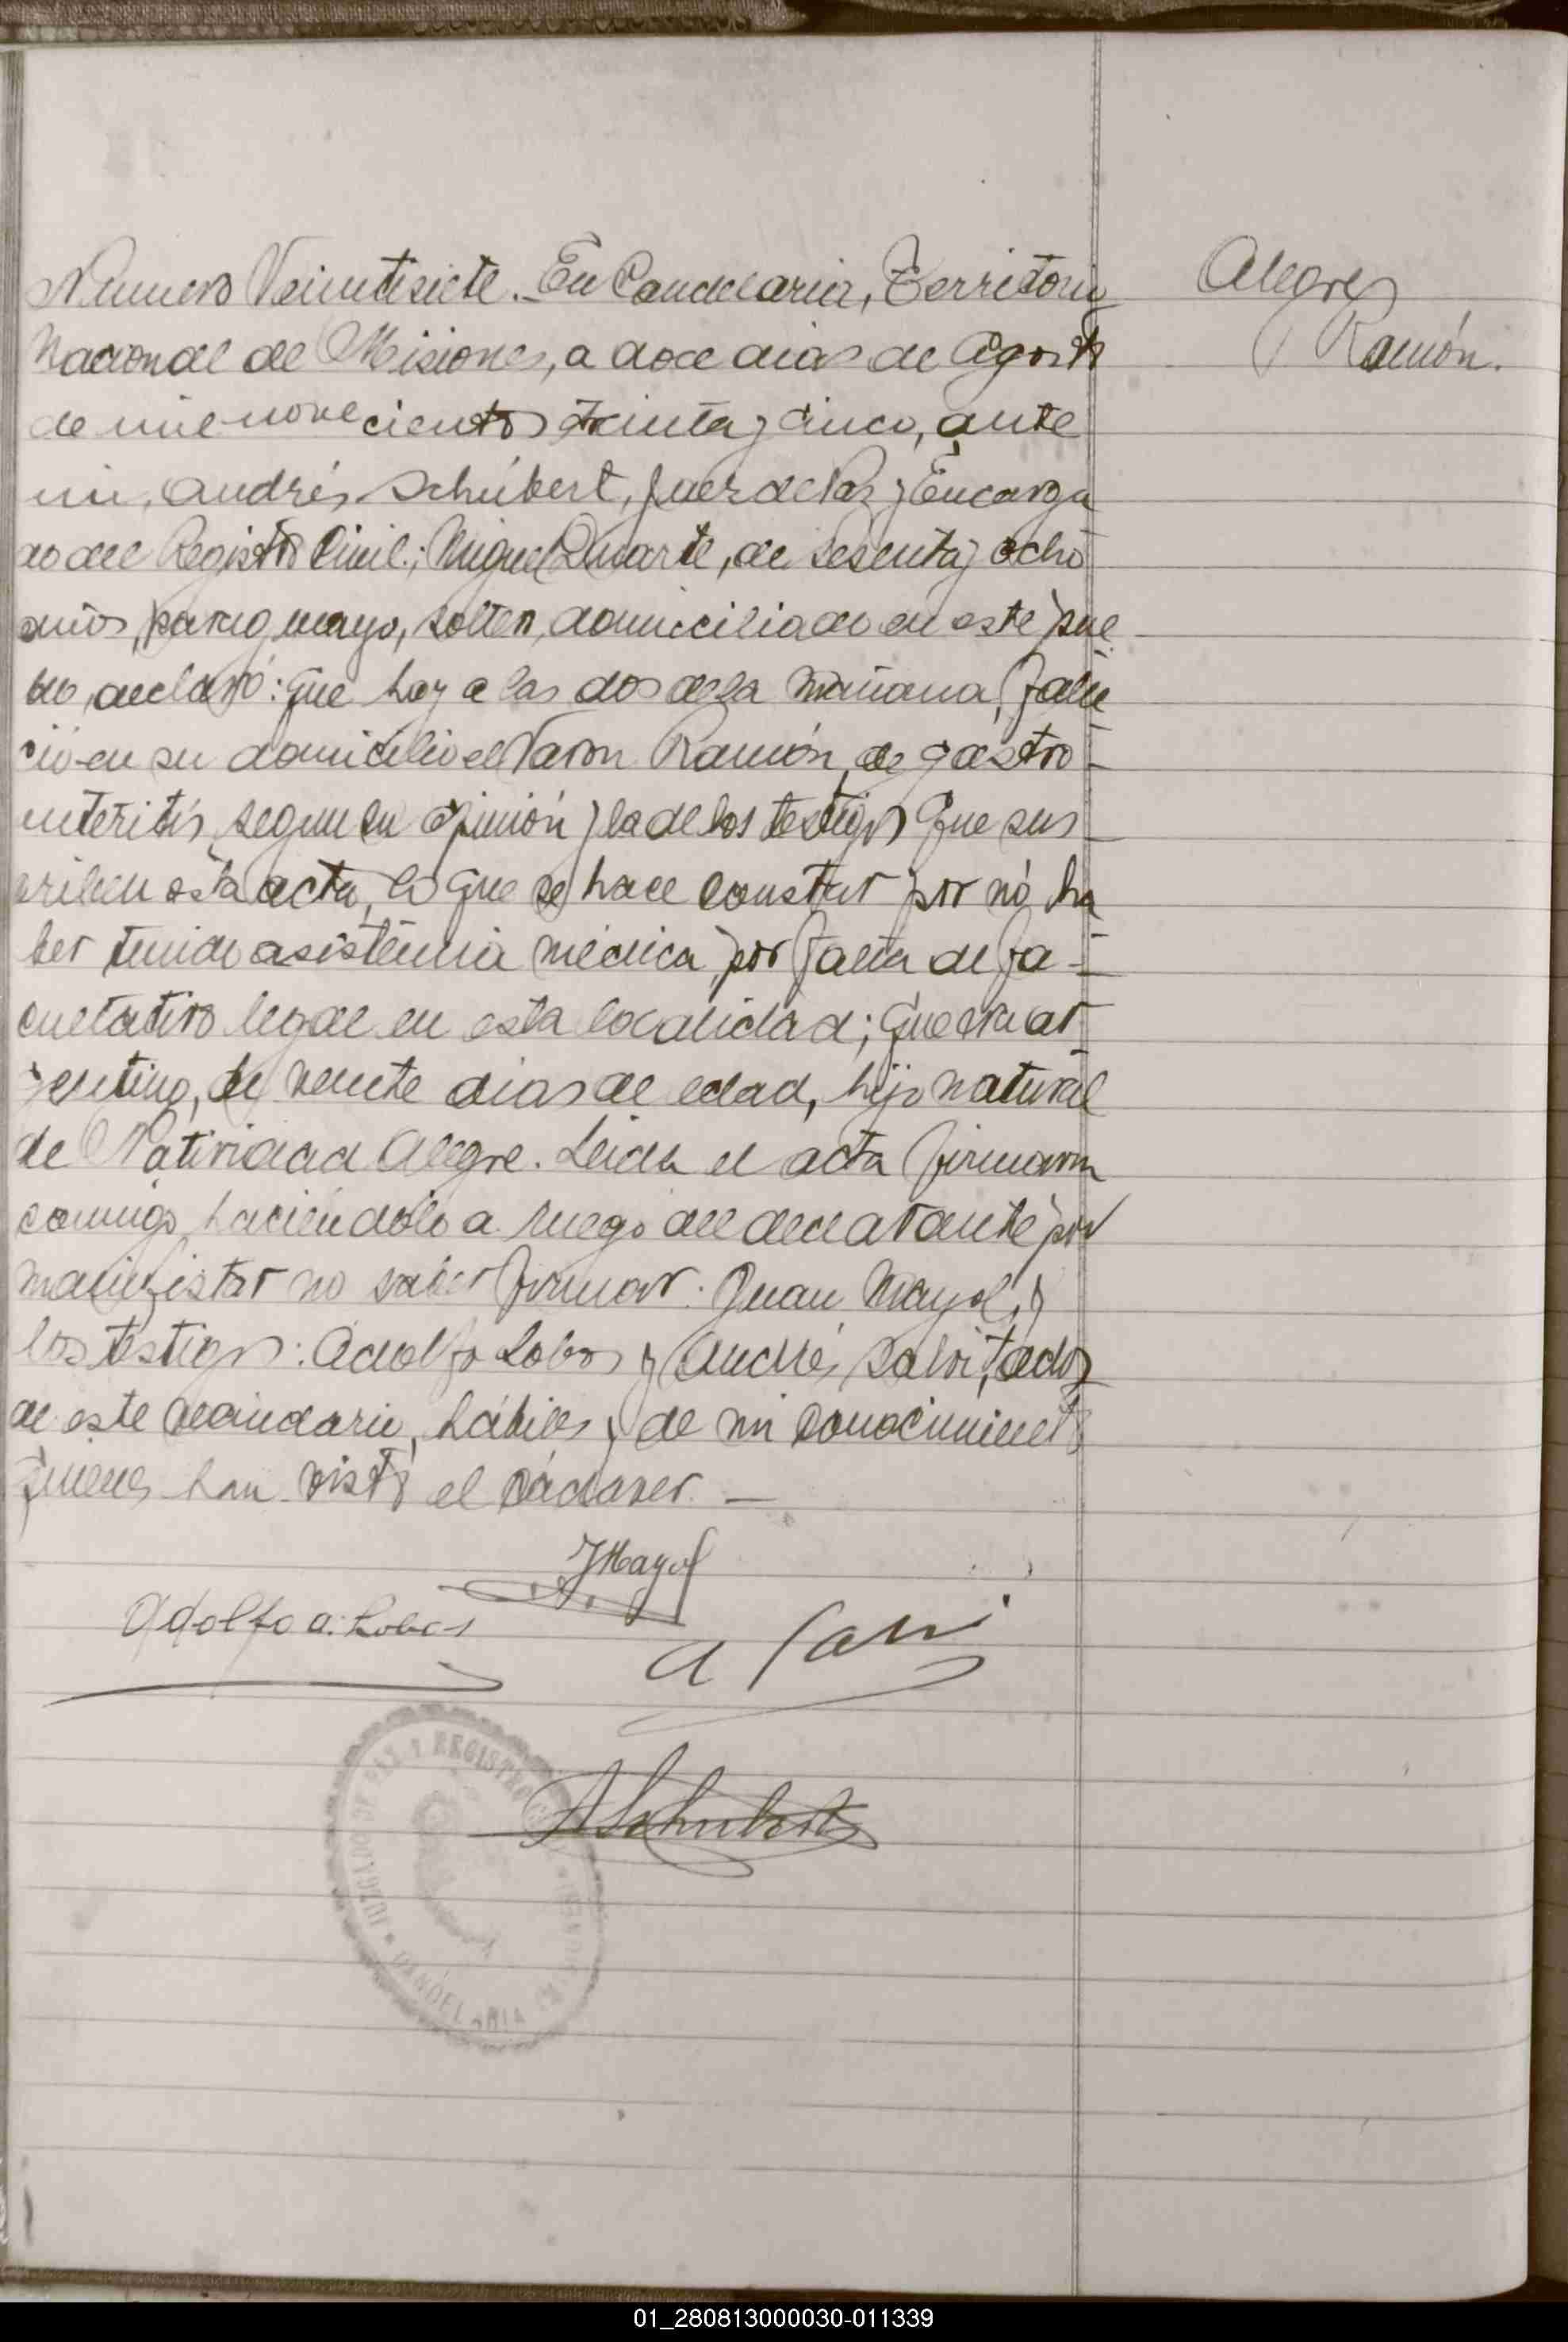 Numero Veintisiete. En Candelaria, Territorio
Nacional de Misiones, a doce dias de Agosto
de mil novecientos treinta y cinco, ante
mi, Andrés Schúbert, Juez de Paz y Encarga
do del Registro Civil; Miguel Duarte, de sesenta y ocho
años, paraguayo, soltero, domiciliado en este pue
blo, declaró: Que hoy a las dos de la mañana, falle
ció en su domicilio el Varon Ramón, de gastro-
enteritis, segun su opinión y la de los testigos que sus
criben esta acta, lo que se hace constar por nó ha
ber tenido asistencia médica, por falta de fa-
cultativo legal en esta localidad; que era ar
gentino, de veinte dias de edad, hijo natural
de Natividad Alegre. Leida el acta firmaron
conmigo, haciéndolo a ruego del declarante por
manifestar no saber firmar: Juan Mayol, y
los testigos: Adolfo Lobos y Andrés Salvi, todos
de este vecindario, hábiles y de mi conocimiento
quienes han visto el cádaver. —
Alegre
Ramón.
JMayol
Adolfo A. Lobos
A Salvi
ASchubert
JUZGADO DE PAZ Y REGISTRO
CANDELARIA
01_280813000030-011339